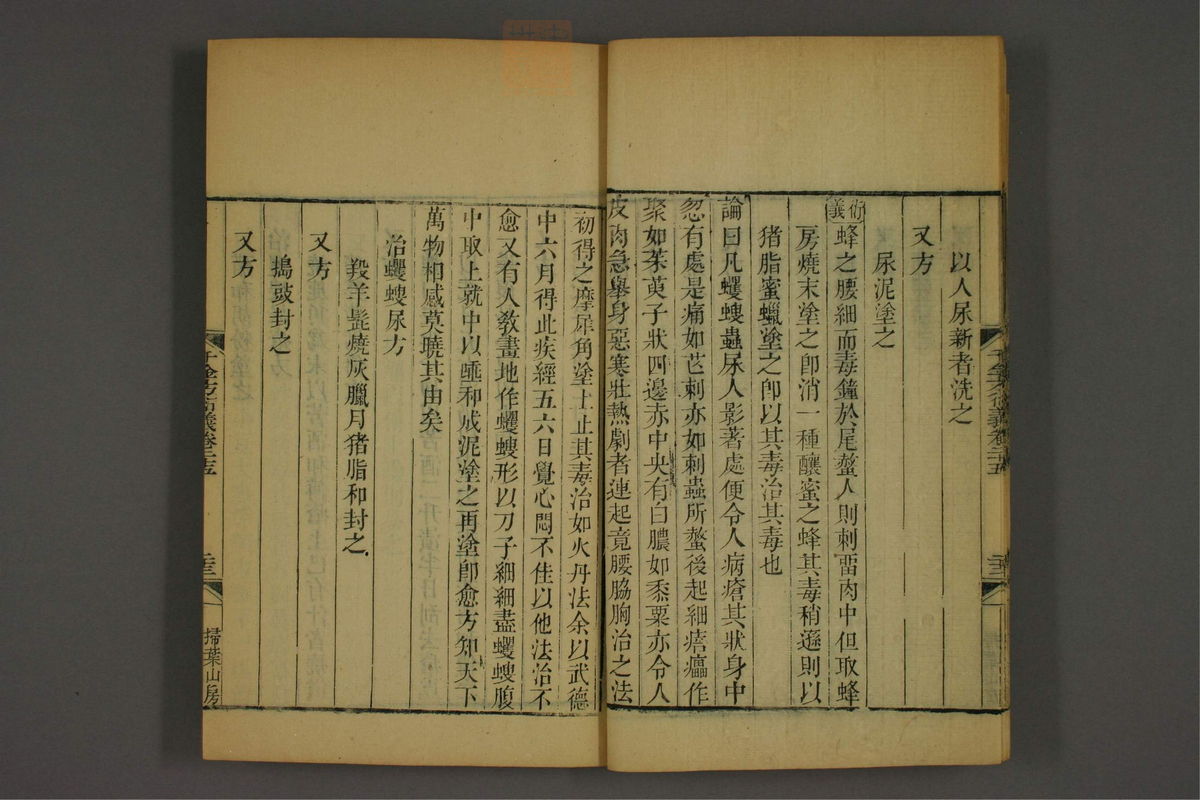 以人尿新者洗之
又方
尿泥塗之
衍義蜂之腰細而毒鐘於尾螫人則刺畱肉中但取蜂
房燒末塗之卽消一種釀蜜之蜂其毒稍遜則以
猪脂蜜蠟塗之卽以其毒治其毒也
論曰凡蠷螋蟲尿人影著處便令人病瘡其狀身中
忽有處是痛如芒刺亦如刺蟲所螫後起細㾦㿔作
聚如茱萸子狀四邊赤中央有白膿如黍粟亦令人
皮肉急舉身惡寒壯熱劇者連起竟腰脇胸治之法
初得之摩犀角塗上止其毒治如火丹法余以武德
中六月得此疾經五六日覺心悶不佳以他法治不
愈又有人敎畫地作蠷螋形以刀子細細盡蠷螋腹
中取土就中以唾和成泥塗之再塗卽愈方知天下
萬物相感莫曉其由矣
治蠷螋尿方
羖羊髭燒灰臘月猪脂和封之
又方
搗豉封之
又方
千金方衍義卷二十五
掃葉山房